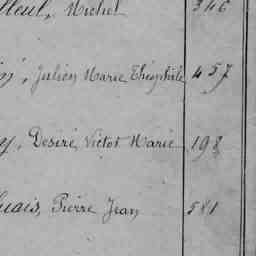 Michel 346
Julien Marie Théophile 457
Desiré Victor Marie 198
Pierre Jean 581